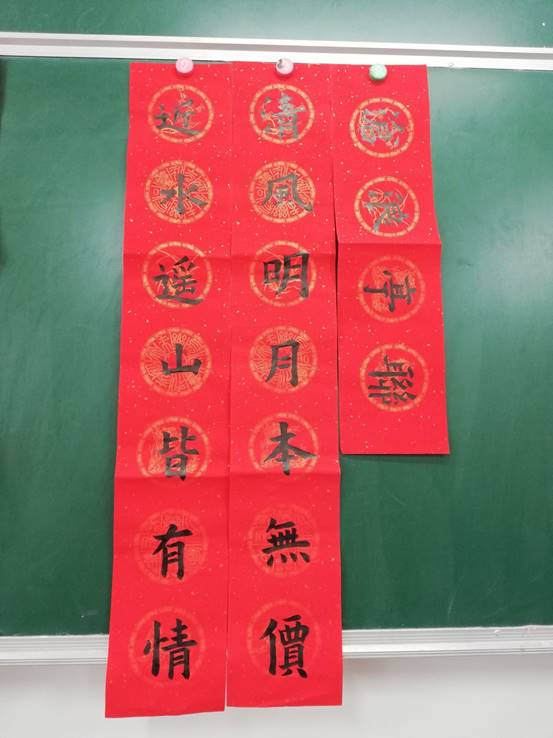 滄浪亭聯
清風明月本無價
近水遥山皆有情